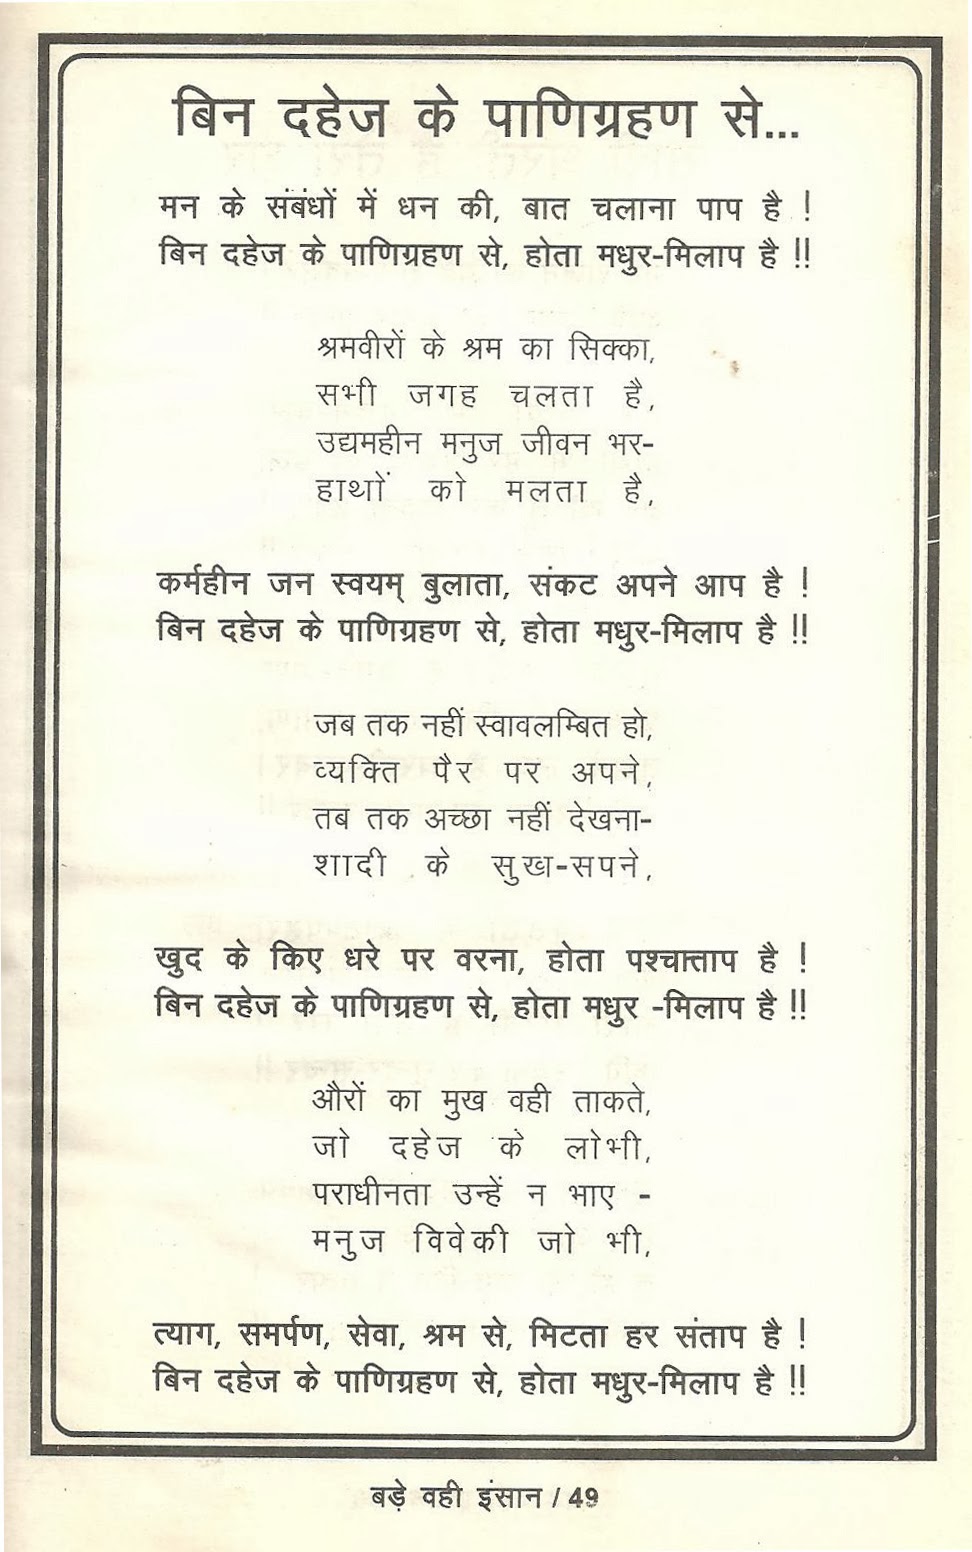 बिन दहेज के पाणिग्रहण से...
मन के संबंधों में धन की, बात चलाना पाप है !
बिन दहेज के पाणिग्रहण से, होता मधुर-मिलाप है !!
श्रमवीरों के श्रम का सिक्का,
सभी जगह चलता है,
उद्यमहीन मनुज जीवन भर-
हाथों को मलता है,
कर्महीन जन स्वयम् बुलाता, संकट अपने आप है !
बिन दहेज के पाणिग्रहण से, होता मधुर-मिलाप है !!
जब तक नहीं स्वावलम्बित हो,
व्यक्ति पैर पर अपने,
तब तक अच्छा नहीं देखना-
शादी के सुख-सपने,
खुद के किए धरे पर वरना, होता पश्चात्ताप है !
बिन दहेज के पाणिग्रहण से, होता मधुर -मिलाप है !!
औरों का मुख वही ताकते,
जो दहेज के लोभी,
पराधीनता उन्हें न भाए -
मनुज विवेकी जो भी,
त्याग, समर्पण, सेवा, श्रम से, मिटता हर संताप है !
बिन दहेज के पाणिग्रहण से, होता मधुर-मिलाप है !!
बड़े वही इंसान / 49